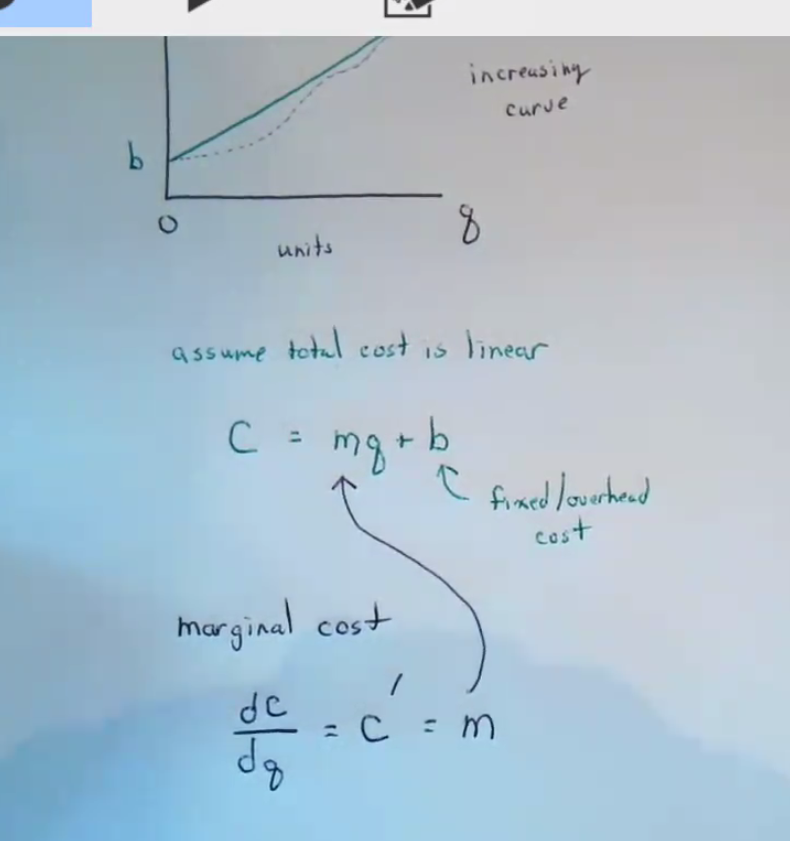 increasing
curve
b
0
q
units
assume total cost is linear
C = mq + b
fixed/overhead
cost
marginal cost
dC
dq
= C' = m